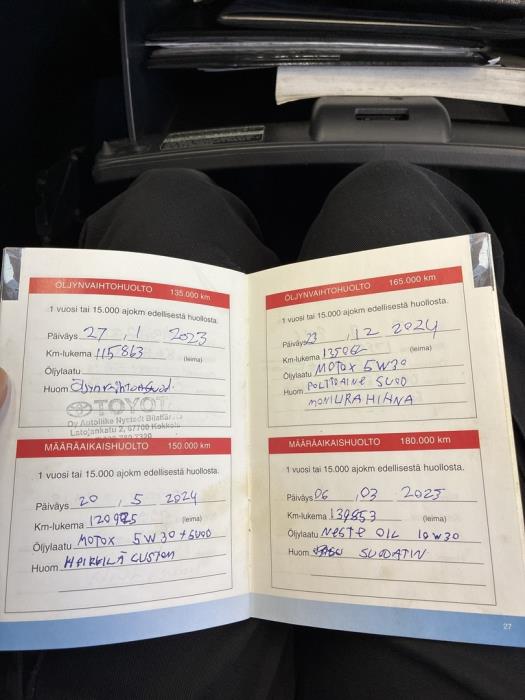 ÖLJYNVAIHTOHUOLTO 135.000 km
1 vuosi tai 15.000 ajokm edellisestä huollosta.
Päiväys 27 1 2023
Km-lukema 115863 (leima)
Öljylaatu
Huom Öljynvaihto+suod.
TOYOT
Oy Autoliike Nystedt Bilaffär
Latojankatu 2, 67700 Kokkola
MÄÄRÄAIKAISHUOLTO 150.000 km
1 vuosi tai 15.000 ajokm edellisestä huollosta.
Päiväys 20 , 5 2024
Km-lukema 120985 (leima)
Öljylaatu MOTOX 5W30 + SUOD
Huom HEIKKILÄ CUSTOM
ÖLJYNVAIHTOHUOLTO 165.000 km
1 vuosi tai 15.000 ajokm edellisestä huollosta.
Päiväys 23 , 12 2024
Km-lukema (leima)
Öljylaatu MOTOX 5W30
Huom POLTTOAINE SUOD
MONIURAHIHNA
MÄÄRÄAIKAISHUOLTO 180.000 km
1 vuosi tai 15.000 ajokm edellisestä huollosta.
Päiväys 06 , 03 2025
Km-lukema 139853 (leima)
Öljylaatu NESTE OIL 10W30
Huom SUODATIN
27